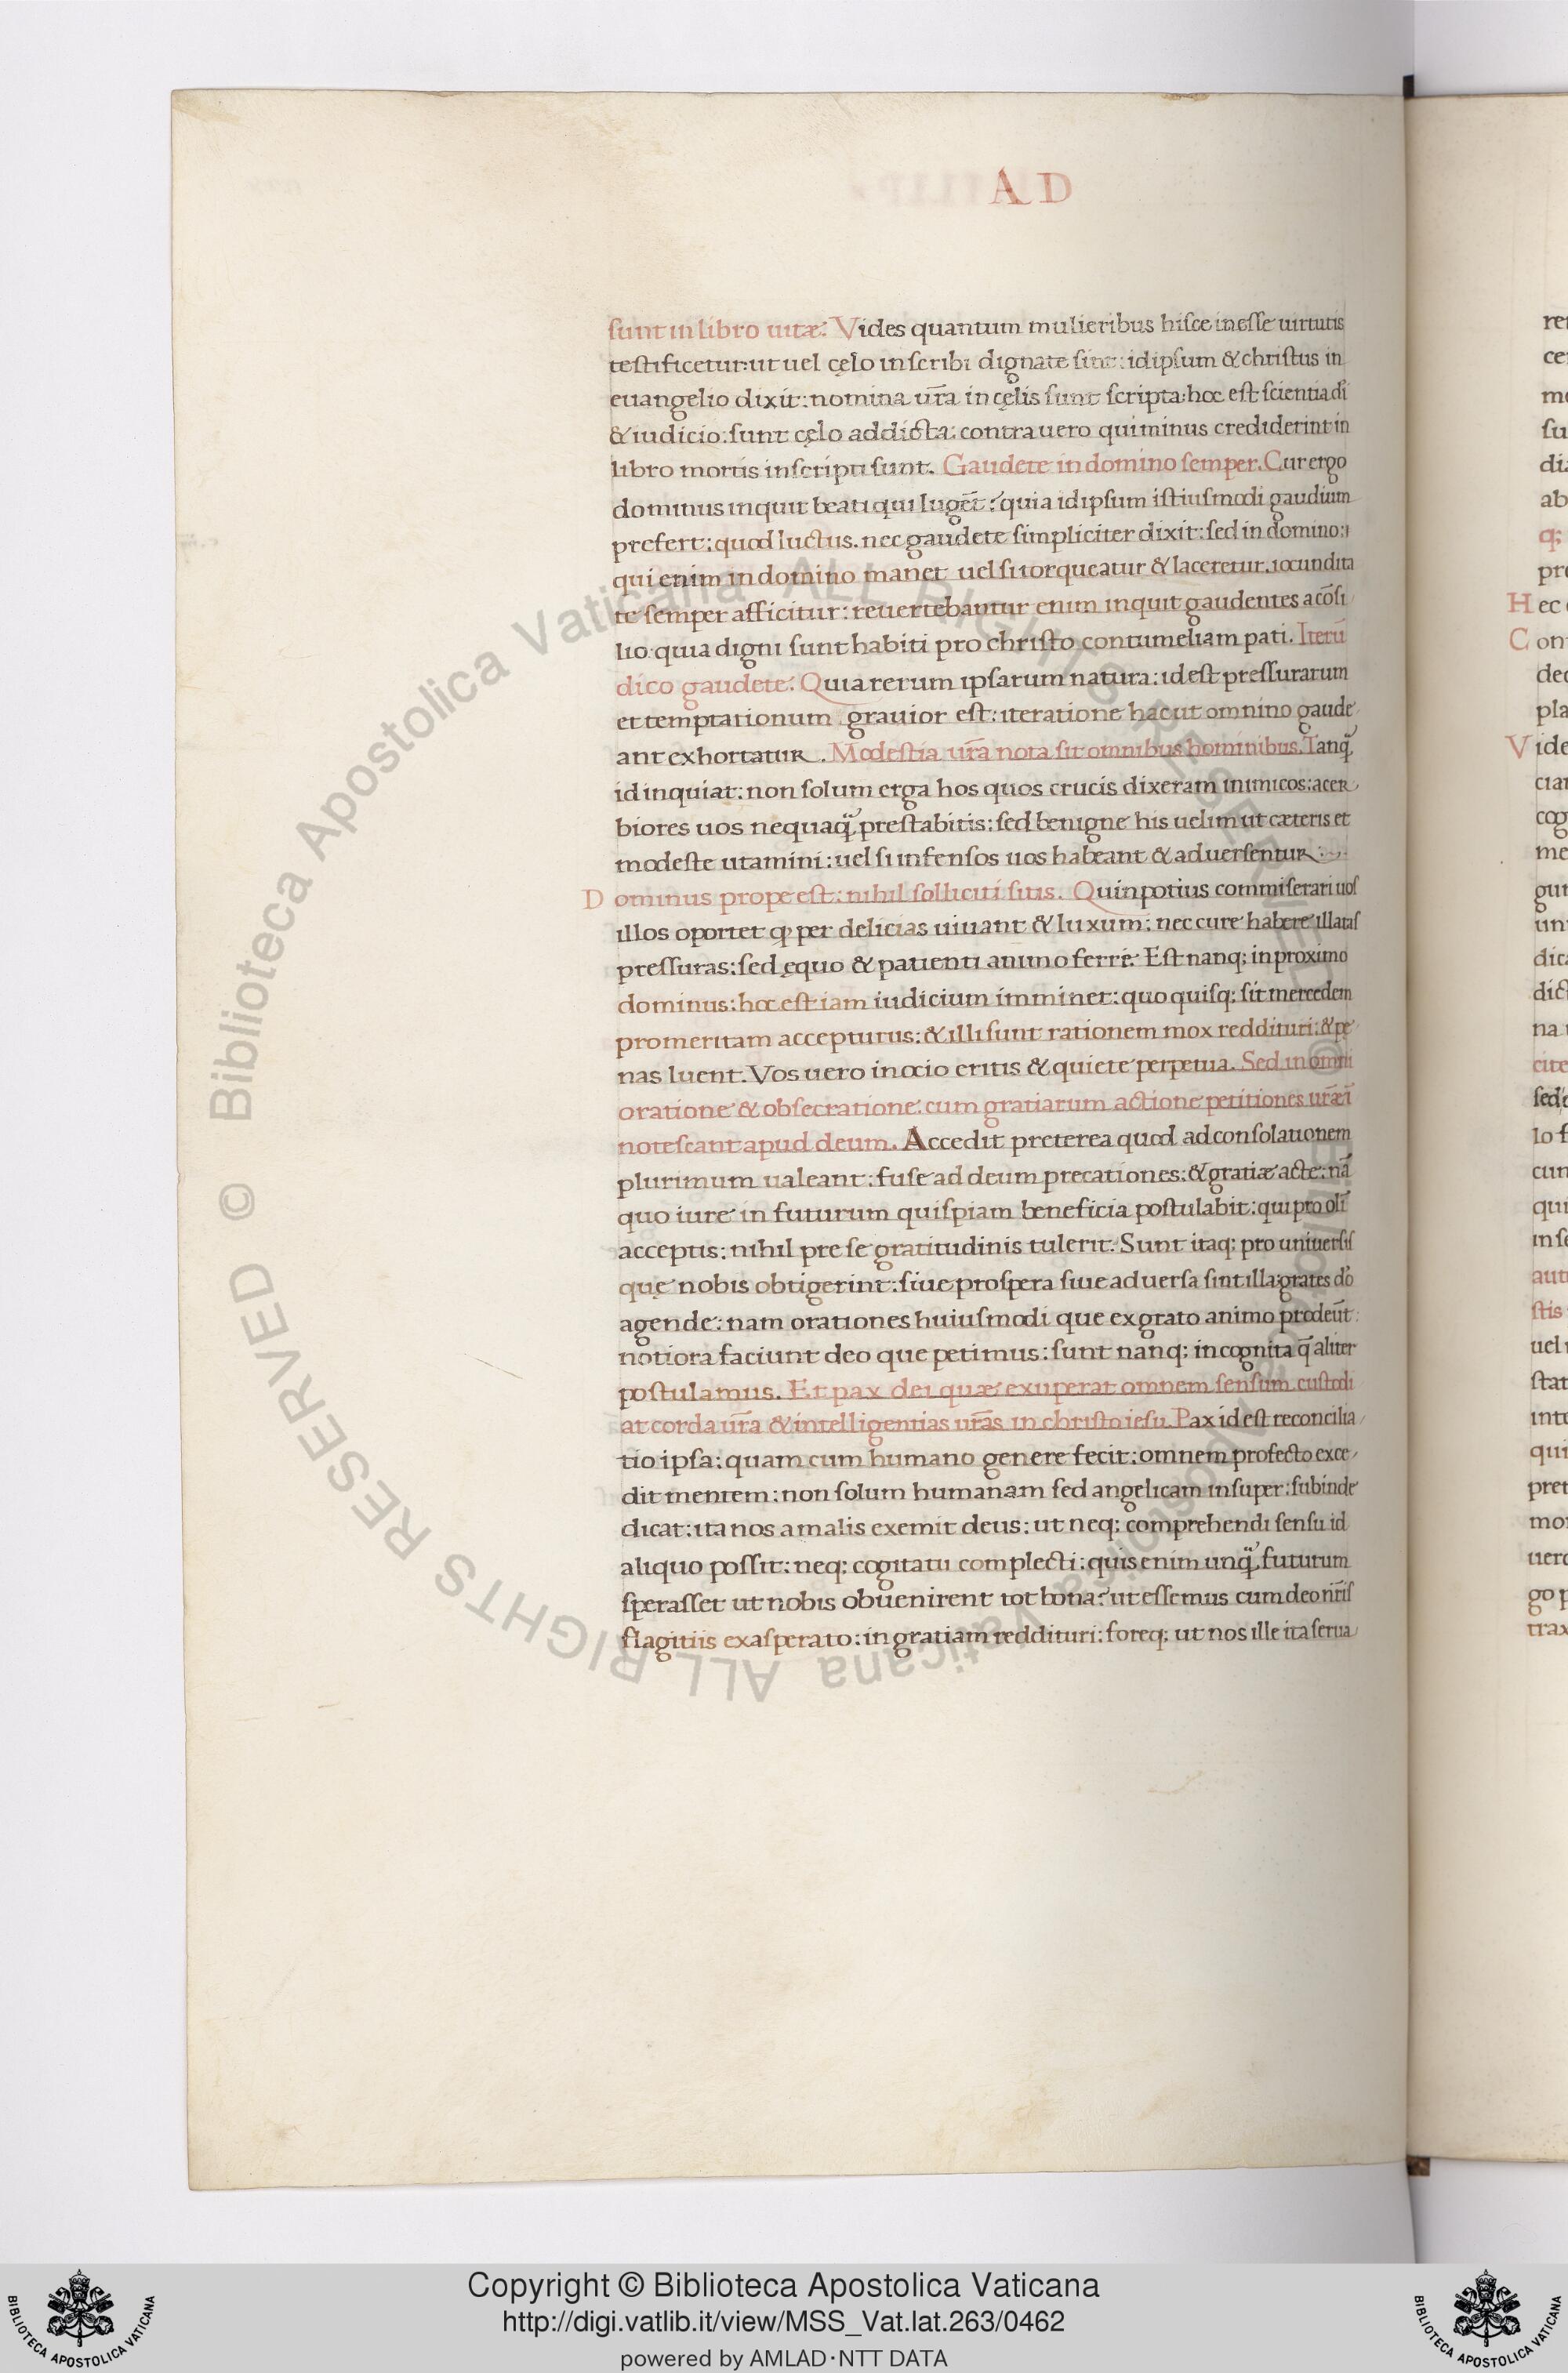 AD
sunt in libro uitæ. Vides quantum mulieribus hisce inesse uirtutis
testificetur: ut uel cęlo inscribi dignate sint: idipsum & christus in
euangelio dixit: nomina ur̄a in cęlis sunt scripta: hoc est scientia di
& iudicio: sunt cęlo addicta: contra uero qui minus crediderint in
libro mortis inscripti sunt. Gaudete in domino semper. Cur ergo
dominus inquit beati qui lugēt? quia idipsum istiusmodi gaudium
prefert: quod luctus. nec gaudete simpliciter dixit: sed in domino:
qui enim in domino manet uel si torqueatur & laceretur. iocundita
te semper afficitur: reuertebantur enim inquit gaudentes a cōsi
lio quia digni sunt habiti pro christo contumeliam pati. Iterū
dico gaudete. Quia rerum ipsarum natura: id est pressurarum
et temptationum grauior est: iteratione hac ut omnino gaude
ant exhortatur. Modestia ur̄a nota sit omnibus hominibus. Tanq̄
id inquiat: non solum erga hos quos crucis dixeram inimicos: acer
biores uos nequaq̄ prestabitis: sed benigne his uelim ut cæteris et
modeste utamini: uel si infensos uos habeant & aduersentur.
Dominus prope est: nihil solliciti sitis. Quin potius commiserari uos
illos oportet ꝙ per delicias uiuant & luxum: nec cure habere illatas
pressuras: sed ęquo & patienti animo ferre. Est nanq; in proximo
dominus: hoc est iam iudicium imminet: quo quisq; sit mercedem
promeritam accepturus: & illi sunt rationem mox reddituri: & pe
nas luent. Vos uero in ocio eritis & quiete perpetua. Sed in omni
oratione & obsecratione: cum gratiarum actione petitiones ur̄æ ī
notescant apud deum. Accedit preterea quod ad consolationem
plurimum ualeant: fuse ad deum precationes: & gratiæ acte: nā
quo iure in futurum quispiam beneficia postulabit: qui pro oli
acceptis: nihil pre se gratitudinis tulerit. Sunt itaq; pro uniuersis
quę nobis obtigerint: siue prospera siue aduersa sint illa: grates do
agende: nam orationes huiusmodi que ex grato animo prodeūt
notiora faciunt deo que petimus: sunt nanq; incognita q̄ aliter
postulamus. Et pax dei quæ exuperat omnem sensum custodi
at corda ur̄a & intelligentias ur̄as in christo iesu. Pax id est reconcilia
tio ipsa: quam cum humano genere fecit: omnem profecto exce
dit mentem: non solum humanam sed angelicam insuper: subinde
dicat: ita nos a malis exemit deus: ut neq; comprehendi sensu id
aliquo possit: neq; cogitatu complecti: quis enim unq̄ futurum
sperasset ut nobis obuenirent tot bona? ut essemus cum deo nr̄is
flagitiis exasperato: in gratiam reddituri: foreq; ut nos ille ita serua
Copyright © Biblioteca Apostolica Vaticana
http://digi.vatlib.it/view/MSS_Vat.lat.263/0462
powered by AMLAD·NTT DATA
© Biblioteca Apostolica Vaticana ALL RIGHTS RESERVED
© Biblioteca Apostolica Vaticana ALL RIGHTS RESERVED
BIBLIOTECA APOSTOLICA VATICANA
BIBLIOTECA APOSTOLICA VATICANA